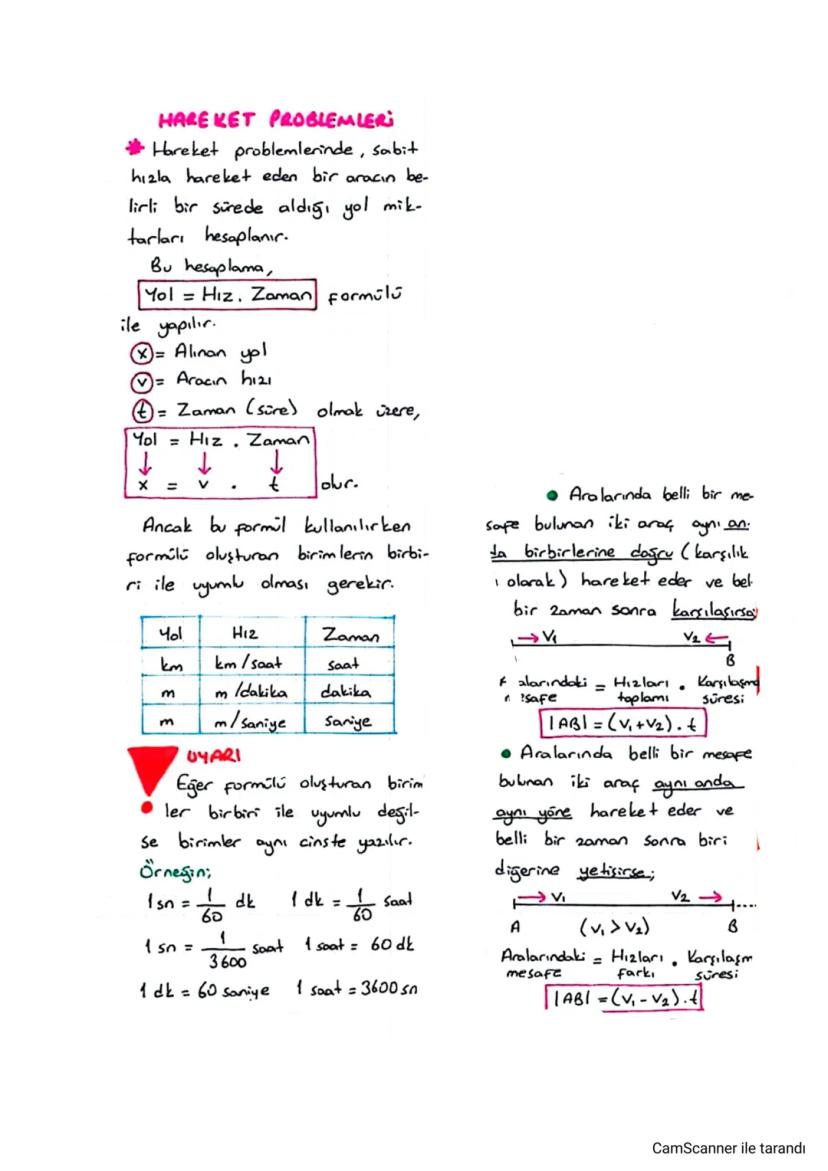 HAREKET PROBLEMLERİ
* Hareket problemlerinde, sabit
hızla hareket eden bir aracın be-
lirli bir sürede aldığı yol mik-
tarları hesaplanır.
Bu hesaplama,
Yol = Hız . Zaman formülü
ile yapılır.
x = Alınan yol
v = Aracın hızı
t = Zaman (süre) olmak üzere,
Yol = Hız . Zaman
↓ ↓ ↓
x = v . t olur.
Ancak bu formül kullanılırken
formülü oluşturan birimlerin birbi-
ri ile uyumlu olması gerekir.
Yol Hız Zaman
km km/saat saat
m m/dakika dakika
m m/saniye saniye
UYARI
Eğer formülü oluşturan birim
ler birbiri ile uyumlu değil-
se birimler aynı cinste yazılır.
Örneğin;
1 sn = 1/60 dk 1 dk = 1/60 saat
1 sn = 1/3600 saat 1 saat = 60 dk
1 dk = 60 saniye 1 saat = 3600 sn
• Aralarında belli bir me-
safe bulunan iki araç aynı an-
da birbirlerine doğru (karşılık
ı olarak) hareket eder ve bel
bir zaman sonra karşılaşırsa;
→ V₁ V₂ ←
B
alarındaki = Hızları . Karşılaşma
safe toplamı süresi
|AB| = (V₁ + V₂) . t
• Aralarında belli bir mesafe
bulunan iki araç aynı anda
aynı yöne hareket eder ve
belli bir zaman sonra biri
diğerine yetişirse;
→ V₁ V₂ →
A (V₁ > V₂) B
Aralarındaki = Hızları . Karşılaşm
mesafe farkı süresi
|AB| = (V₁ - V₂) . t
CamScanner ile tarandı